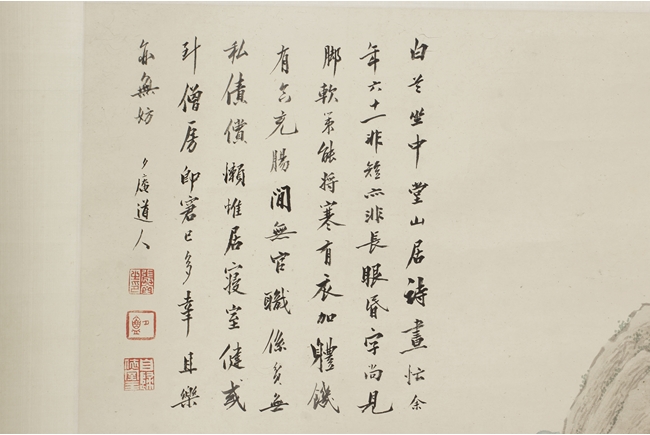 白坐中堂山居詩畫余
年六十一非短亦非長眼昏字尚見
脚軟策能將寒有衣加體饑
有食充腸閒無官職係貧無
私債償懶惟居寢室健或
到僧房即窘已多幸且樂
亦無妨 夕庵道人